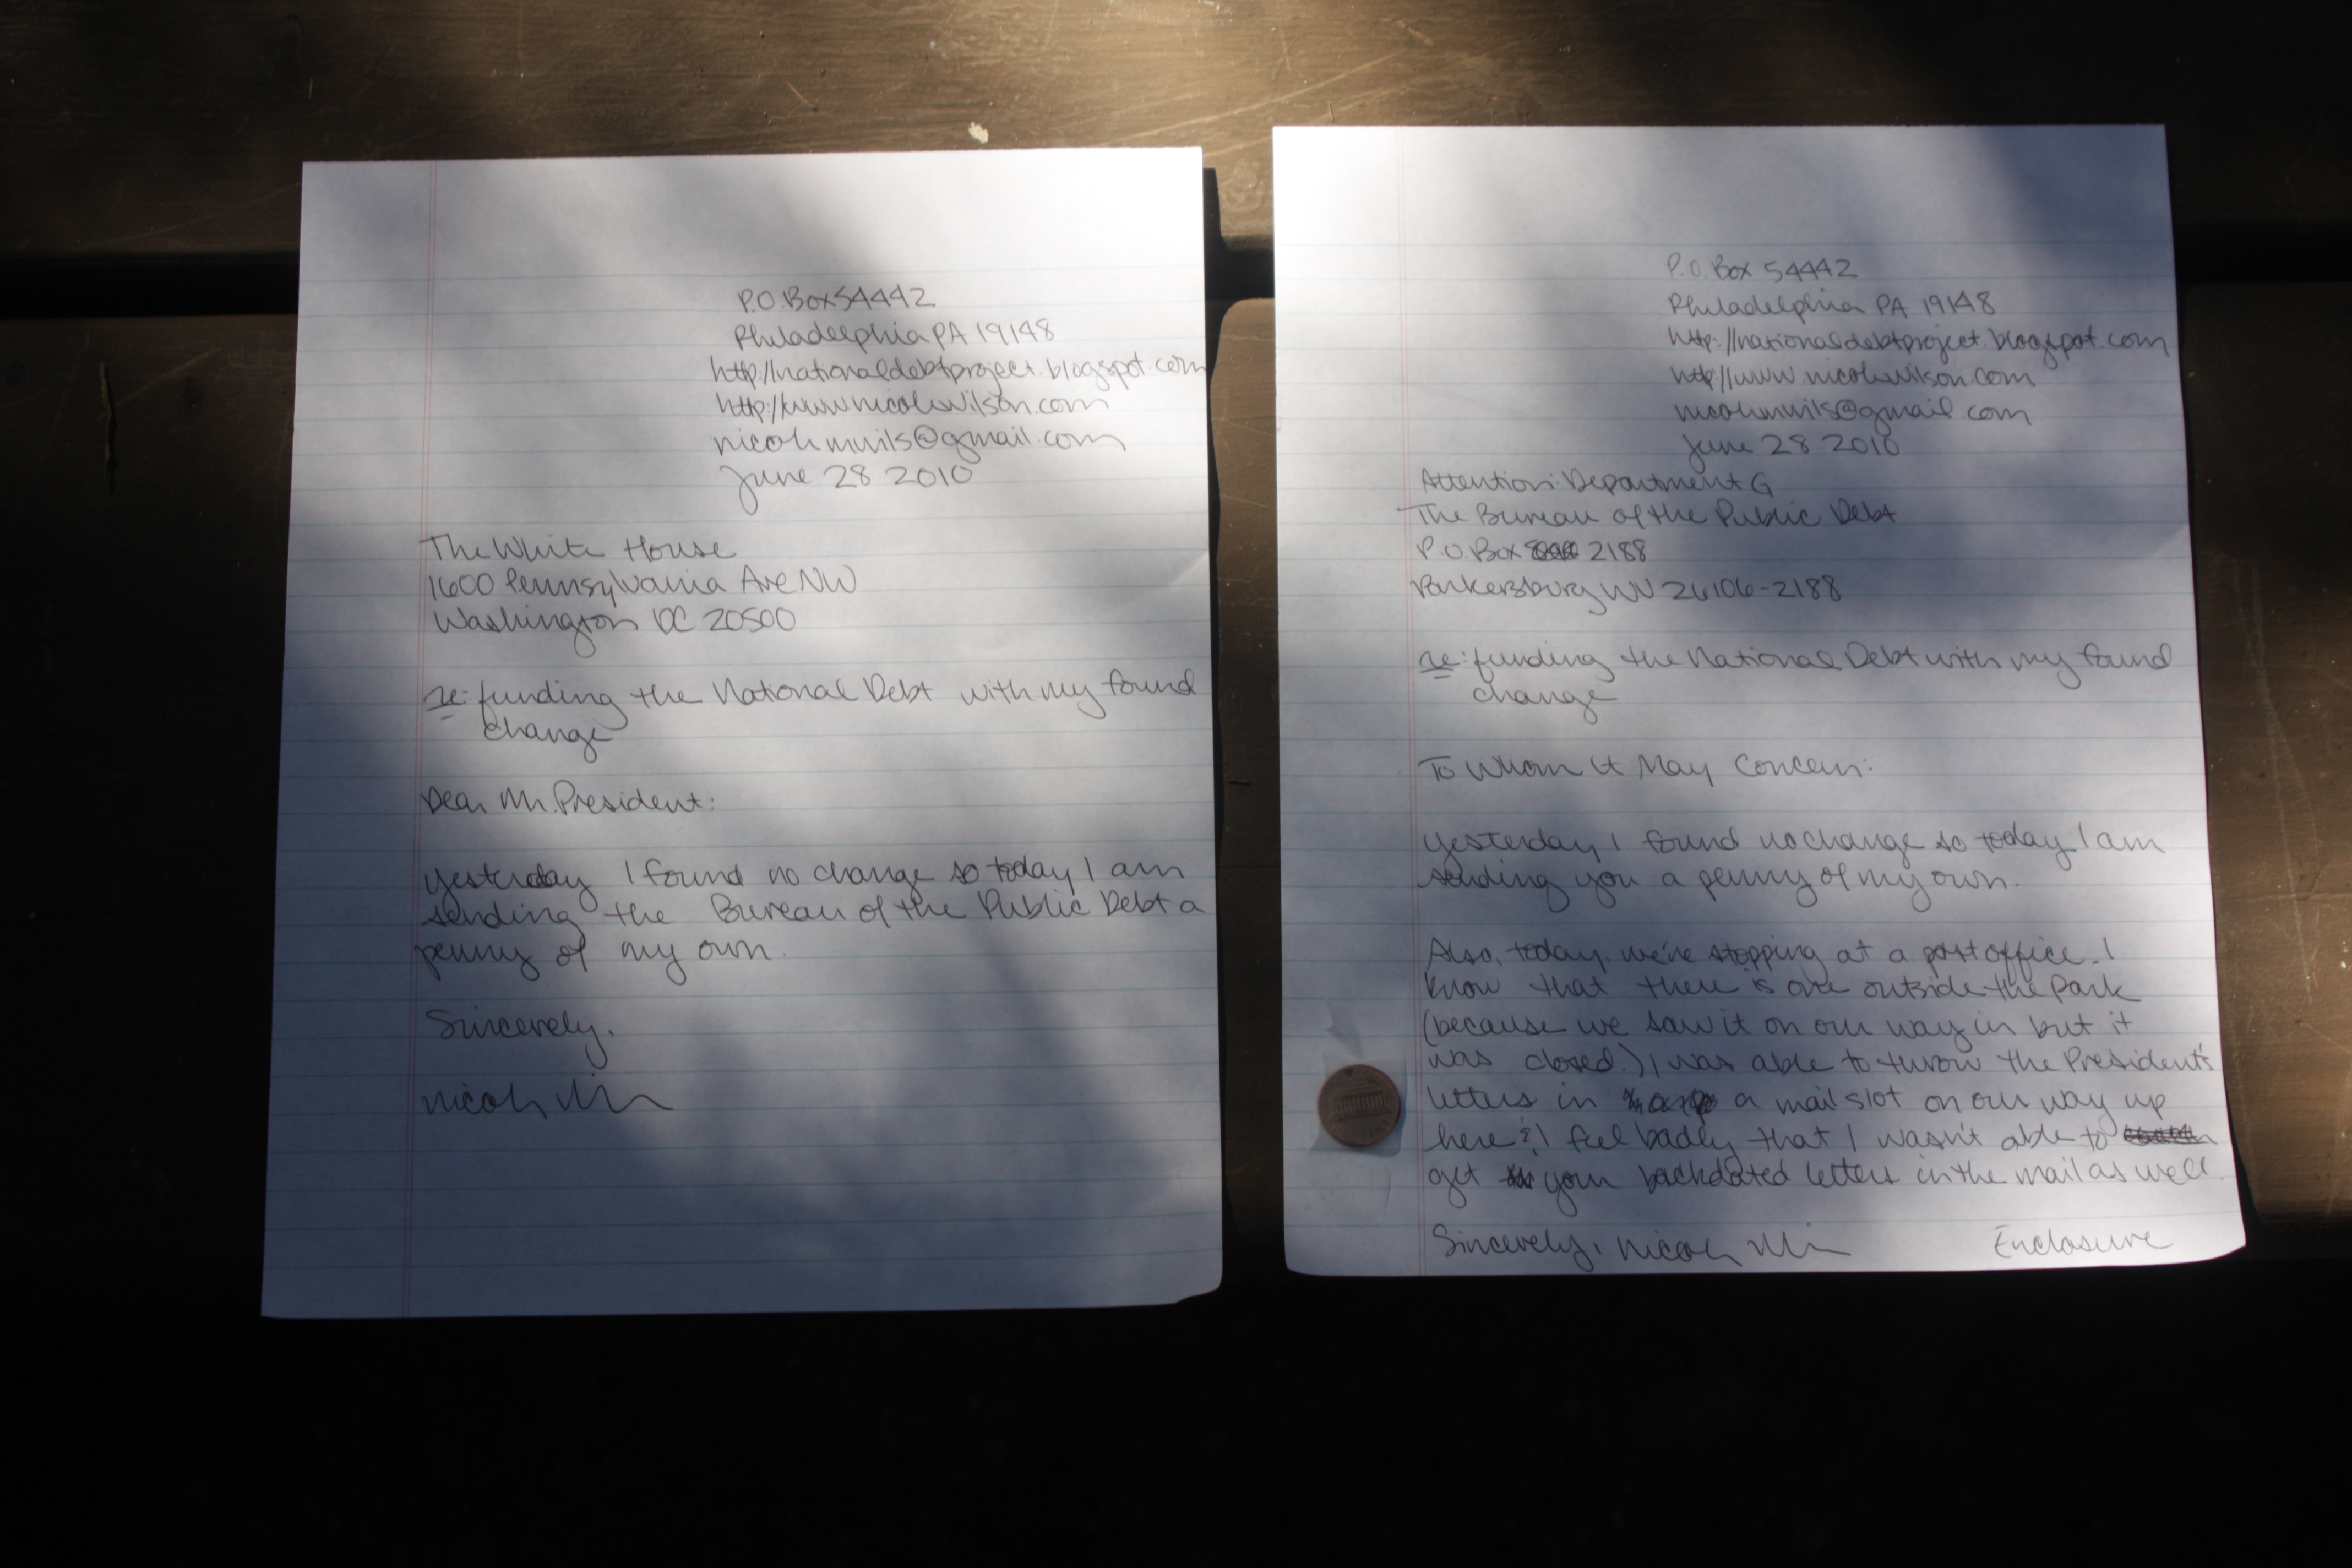 P.O. Box 54442
Philadelphia PA 19148
http://nationaldebtproject.blogspot.com
http://www.nicolewilson.com
nicolemwils@gmail.com
June 28 2010
The White House
1600 Pennsylvania Ave NW
Washington DC 20500
re: funding the National Debt with my found
change
Dear Mr. President:
Yesterday I found no change so today I am
sending the Bureau of the Public Debt a
penny of my own.
Sincerely,
P.O. Box 54442
Philadelphia PA 19148
http://nationaldebtproject.blogspot.com
http://www.nicolewilson.com
nicolemwils@gmail.com
June 28 2010
Attention: Department G
The Bureau of the Public Debt
P.O. Box 2188
Parkersburg WV 26106-2188
re: funding the National Debt with my found
change
To Whom It May Concern:
Yesterday I found no change so today I am
sending you a penny of my own.
Also, today, we're stopping at a post office. I
know that there is one outside the park
(because we saw it on our way in but it
was closed.) I was able to throw the President's
letters in a mail slot on our way up
here & I feel badly that I wasn't able to
get your backdated letters in the mail as well.
Sincerely, Enclosure